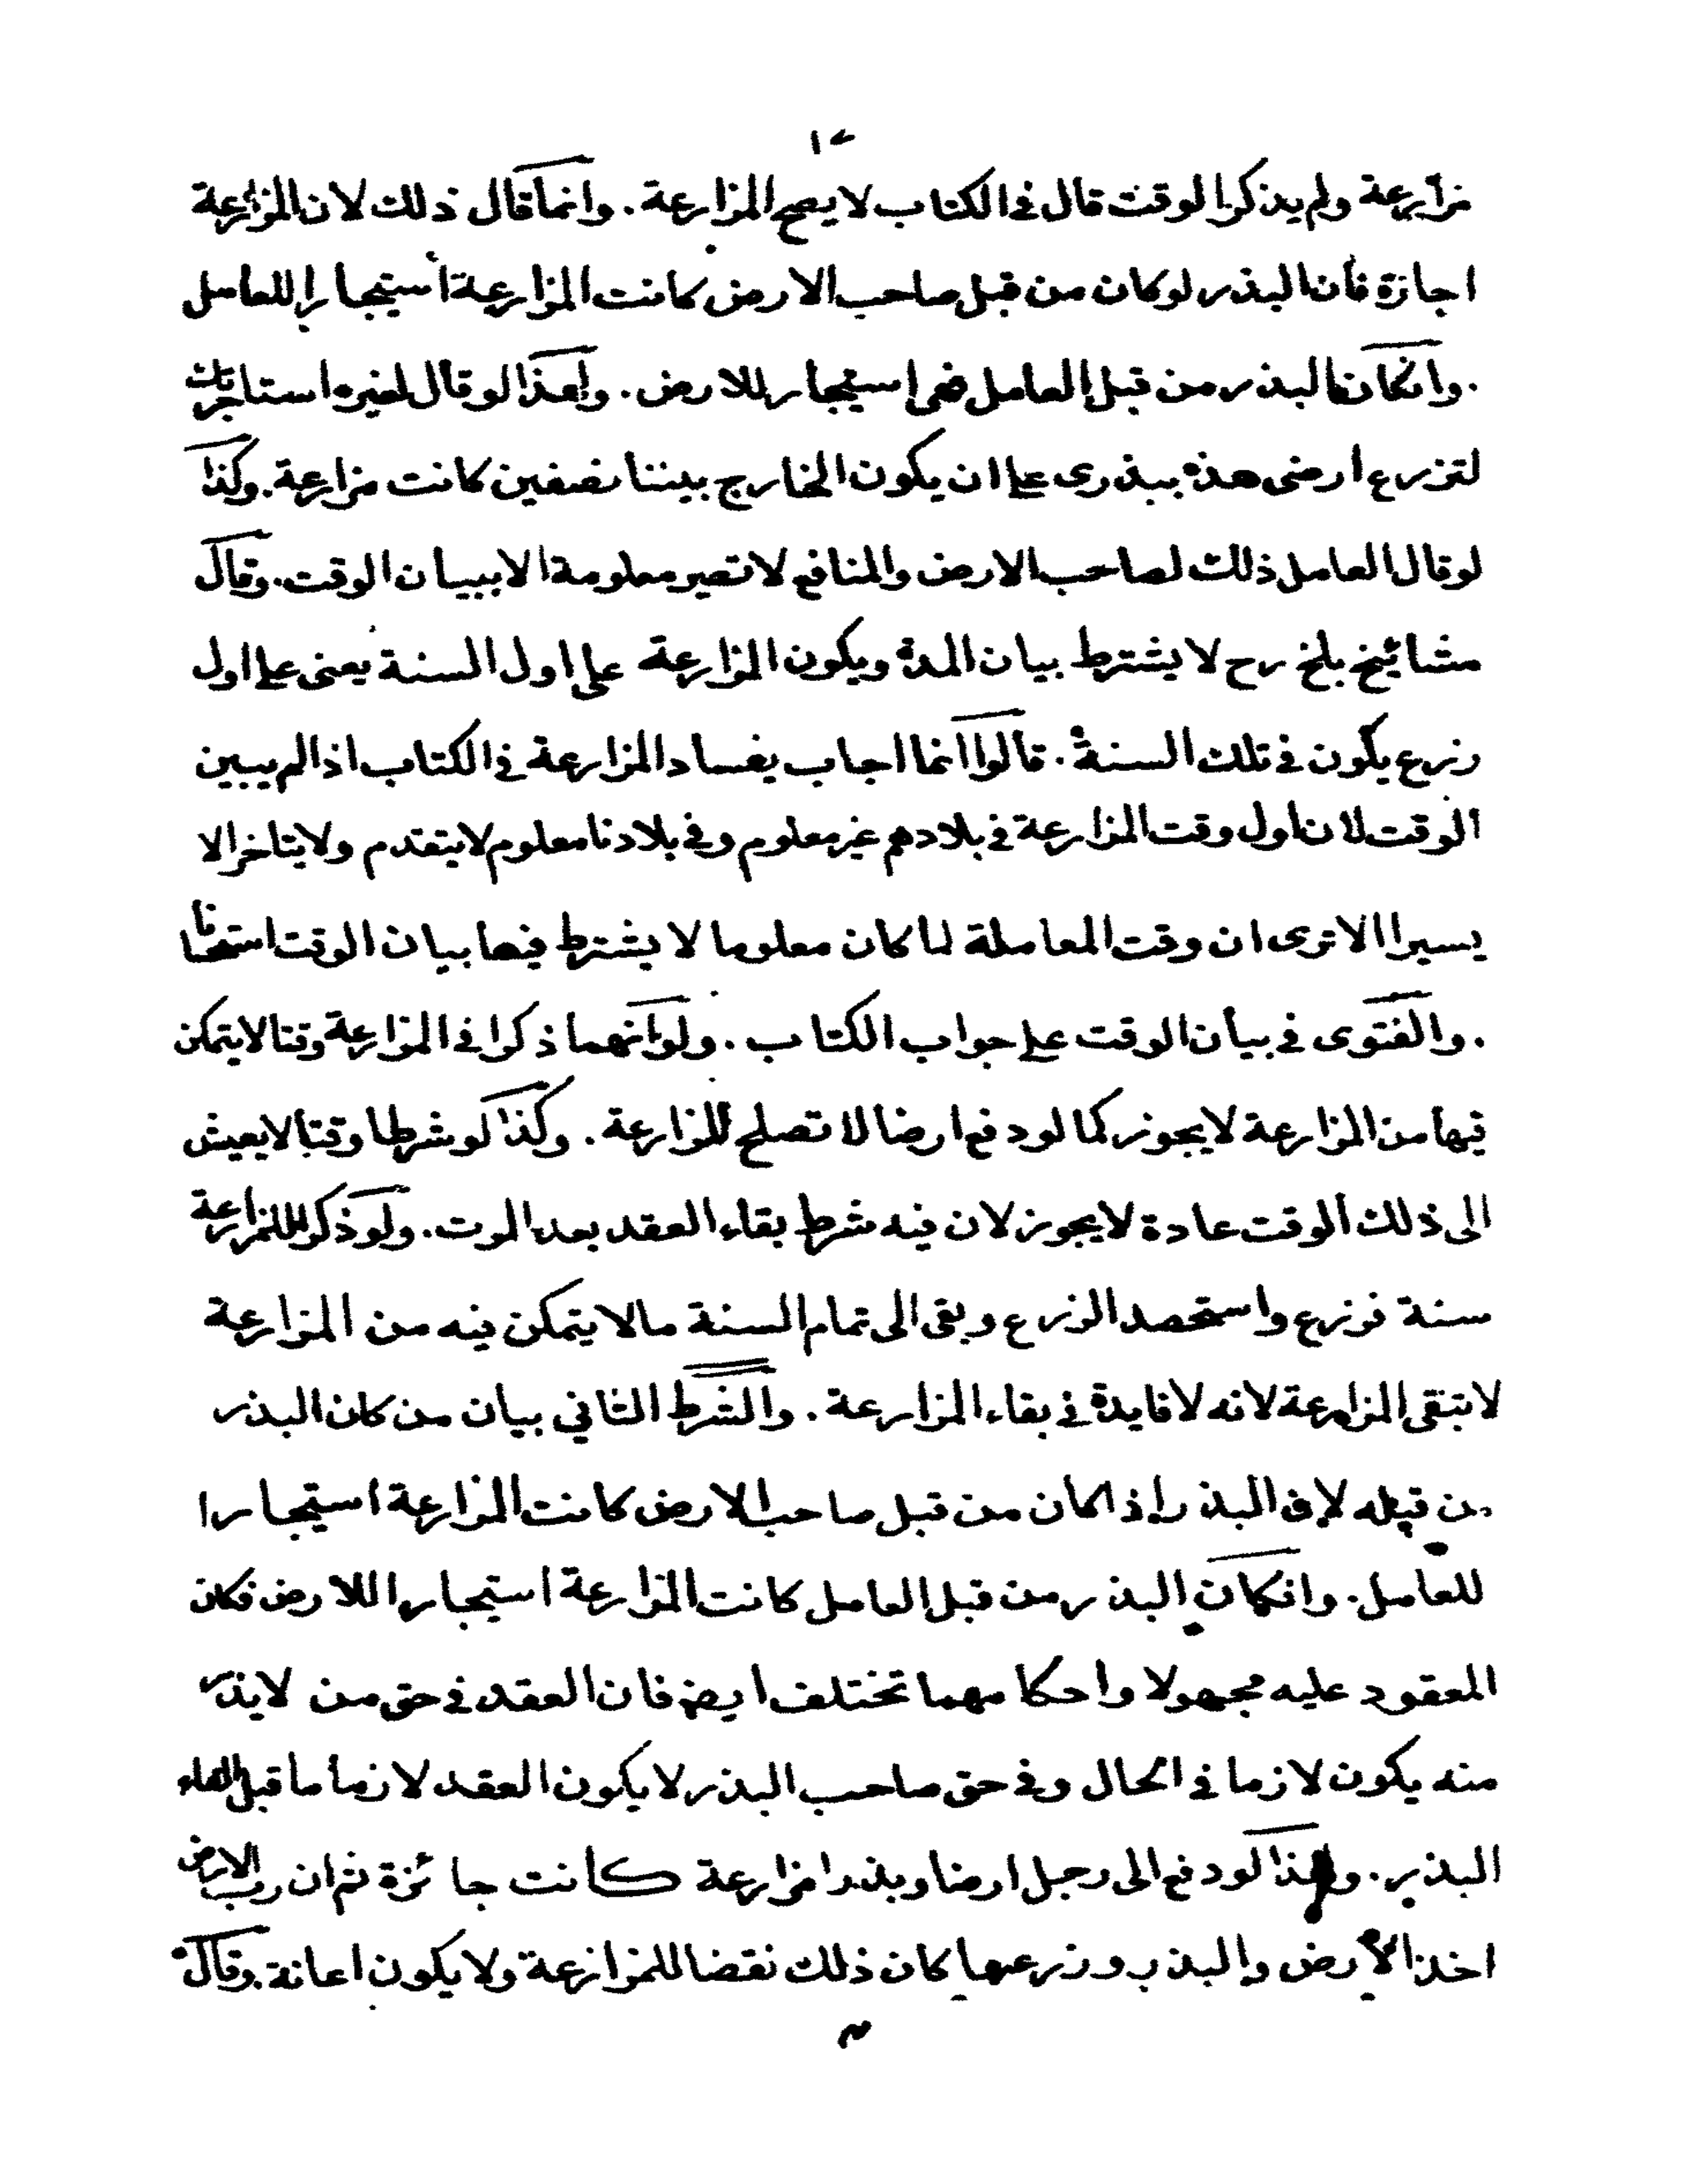 مزارعة ولم يذكر الوقت قال في الكتاب لا يصح المزارعة . وانما قال ذلك لان المزارعة
اجازة فان البذر لو كان من قبل صاحب الارض كانت المزارعة استيجارا للعامل
. وانكان البذر من قبل العامل فهى استيجار للارض . ولهذا لو قال لغيره استاجرتك
لتزرع ارضى هذه ببذرى على ان يكون الخارج بيننا نصفين كانت مزارعة . وكذا
لو قال العامل ذلك لصاحب الارض والمنافع لا تصير معلومة الا ببيان الوقت . وقال
مشائيخ بلخ رح لا يشترط بيان المدة ويكون المزارعة على اول السنة يعنى على اول
زرع يكون في تلك السنة . قالوا انما اجاب بفساد المزارعة في الكتاب اذا لم يبين
الوقت لان اول وقت المزارعة في بلادهم غير معلوم وفي بلادنا معلوم لا يتقدم ولا يتاخر الا
يسيرا الا ترى ان وقت المعاملة لما كان معلوما لا يشترط فيها بيان الوقت استحسانا
. والفتوى في بيان الوقت على جواب الكتاب . ولو انهما ذكرا في المزارعة وقتا لا يتمكن
فيها من المزارعة لا يجوز كما لو دفع ارضا لا تصلح للمزارعة . وكذا لو شرطا وقتا لا يعيش
الى ذلك الوقت عادة لا يجوز لان فيه شرط بقاء العقد بعد الموت . ولو ذكر للمزارعة
سنة فزرع واستحصد الزرع وبقى الى تمام السنة مالا يتمكن فيه من المزارعة
لا تبقى المزارعة لانه لا فايدة في بقاء المزارعة . والشرط الثاني بيان من كان البذر
من قبله لان البذر اذا كان من قبل صاحب الارض كانت المزارعة استيجارا
للعامل . وانكان البذر من قبل العامل كانت المزارعة استيجارا للارض فكان
المعقود عليه مجهولا واحكامهما تختلف ايضا فان العقد في حق من لا بذر
منه يكون لازما في الحال وفي حق صاحب البذر لا يكون العقد لازما ما قبل القاء
البذر . ولهذا لو دفع الى رجل ارضا وبذرا مزارعة كانت جائزة ثم ان رب الارض
اخذ الارض والبذر وزرعها كان ذلك نقضا للمزارعة ولا يكون اعانة . وقال